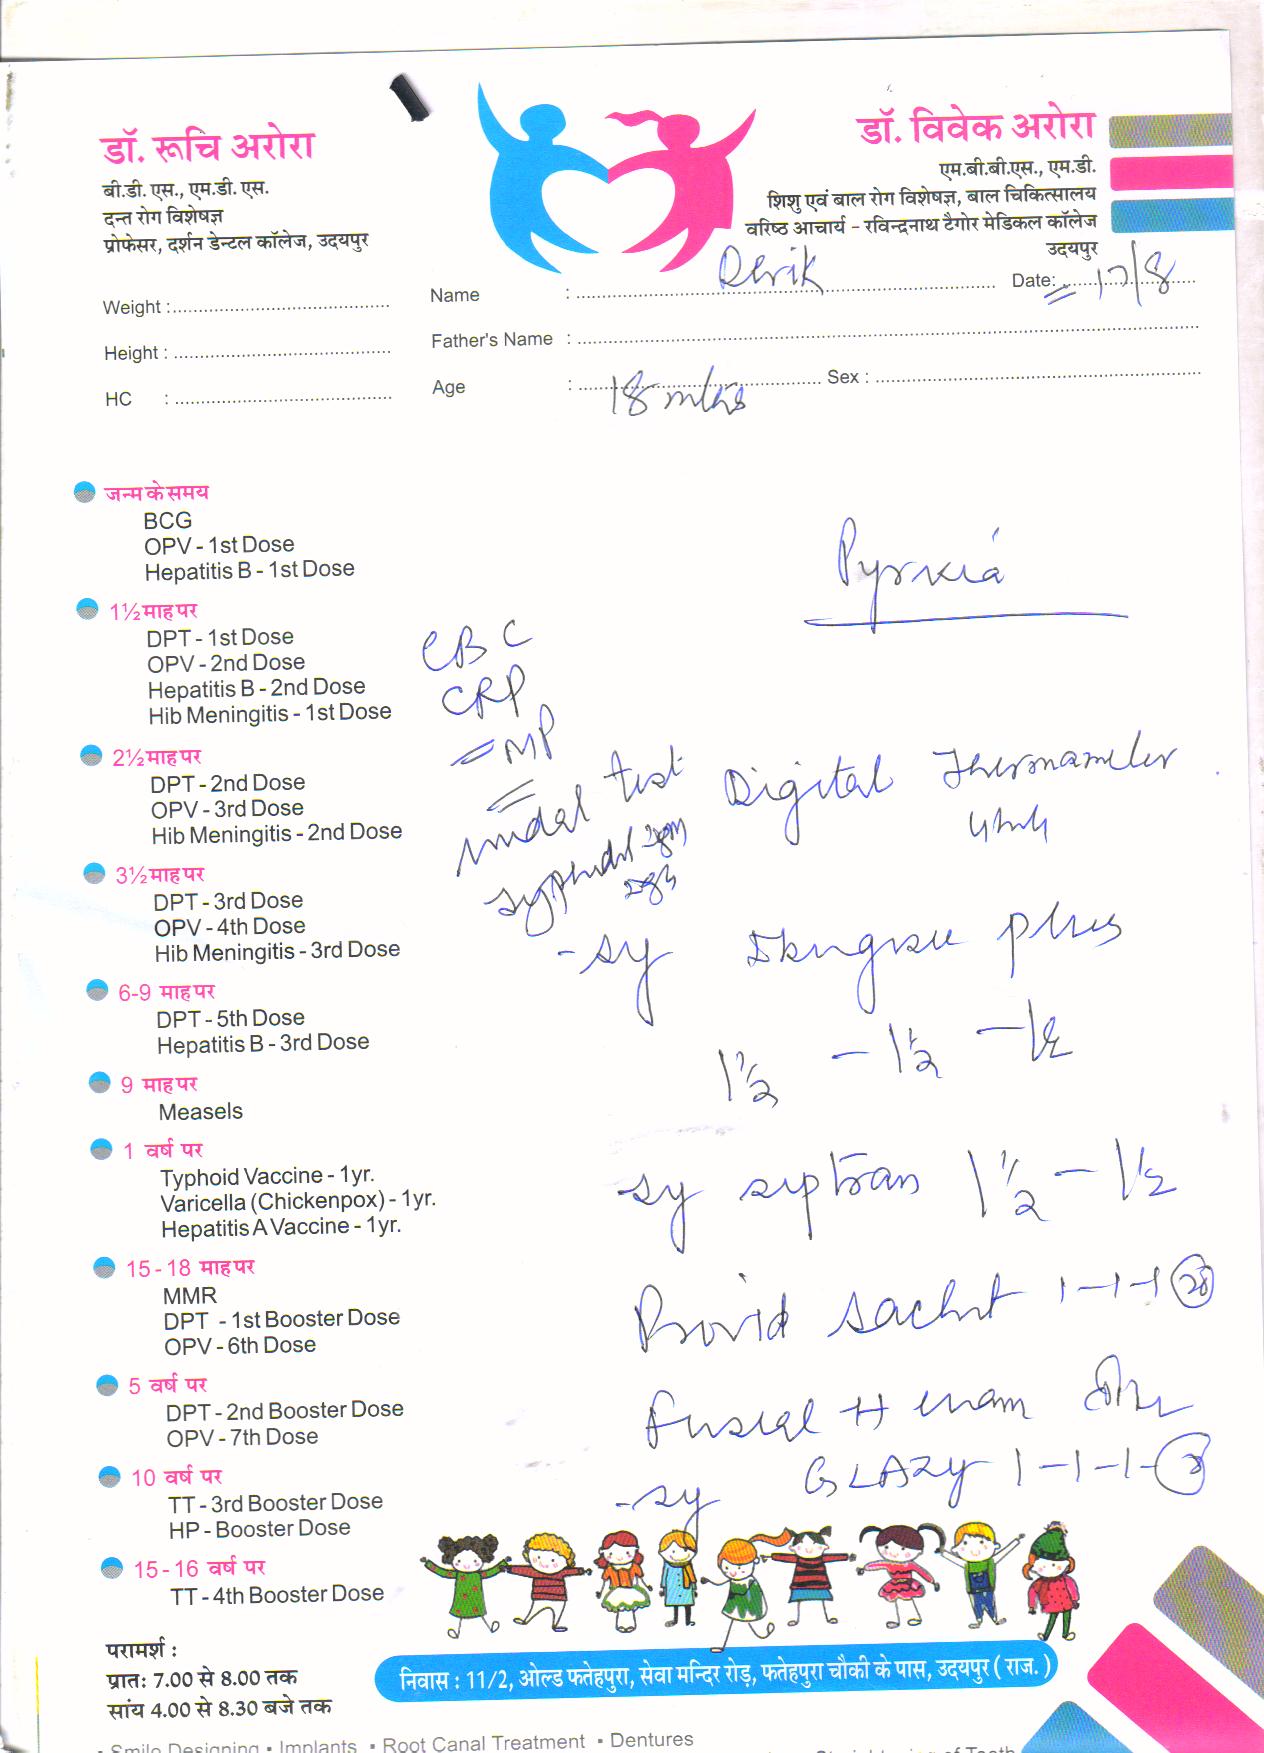 डॉ. रूचि अरोरा
बी.डी. एस., एम.डी. एस.
दन्त रोग विशेषज्ञ
प्रोफेसर, दर्शन डेन्टल कॉलेज, उदयपुर
डॉ. विवेक अरोरा
एम.बी.बी.एस., एम.डी.
शिशु एवं बाल रोग विशेषज्ञ, बाल चिकित्सालय
वरिष्ठ आचार्य - रविन्द्रनाथ टैगोर मेडिकल कॉलेज
उदयपुर
Weight :
Name : Date: 17/8
Height :
Father's Name :
HC :
Age : 18 mths Sex :
जन्म के समय
BCG
OPV - 1st Dose
Hepatitis B - 1st Dose
1½ माह पर
DPT - 1st Dose
OPV - 2nd Dose
Hepatitis B - 2nd Dose
Hib Meningitis - 1st Dose
2½ माह पर
DPT - 2nd Dose
OPV - 3rd Dose
Hib Meningitis - 2nd Dose
3½ माह पर
DPT - 3rd Dose
OPV - 4th Dose
Hib Meningitis - 3rd Dose
6-9 माह पर
DPT - 5th Dose
Hepatitis B - 3rd Dose
9 माह पर
Measels
1 वर्ष पर
Typhoid Vaccine - 1yr.
Varicella (Chickenpox) - 1yr.
Hepatitis A Vaccine - 1yr.
15-18 माह पर
MMR
DPT - 1st Booster Dose
OPV - 6th Dose
5 वर्ष पर
DPT - 2nd Booster Dose
OPV - 7th Dose
10 वर्ष पर
TT - 3rd Booster Dose
HP - Booster Dose
15-16 वर्ष पर
TT - 4th Booster Dose
Pyrexia
CBC
CRP
MP
widal test
Digital Thermameter
sy plus
1½ - 1½ - 1½
sy septran 1½ - 1½
sachet 1-1-1
H
sy GLAZY 1-1-1-
परामर्श :
प्रातः 7.00 से 8.00 तक
सांय 4.00 से 8.30 बजे तक
निवास : 11/2, ओल्ड फतेहपुरा, सेवा मन्दिर रोड़, फतेहपुरा चौकी के पास, उदयपुर ( राज. )
• Smile Designing • Implants • Root Canal Treatment • Dentures